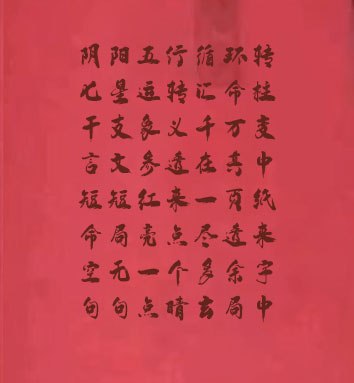 阴阳五行循环转
七星运转汇命柱
干支象义千万变
言文参透在其中
短短红来一页纸
命局亮点尽透来
空无一个多余字
句句点睛玄局中